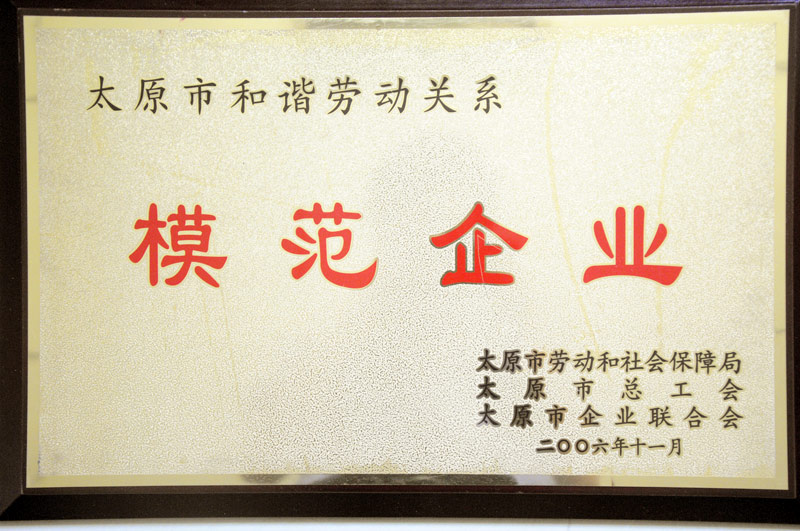 太原市和谐劳动关系
模范企业
太原市劳动和社会保障局
太原市总工会
太原市企业联合会
二〇〇六年十一月